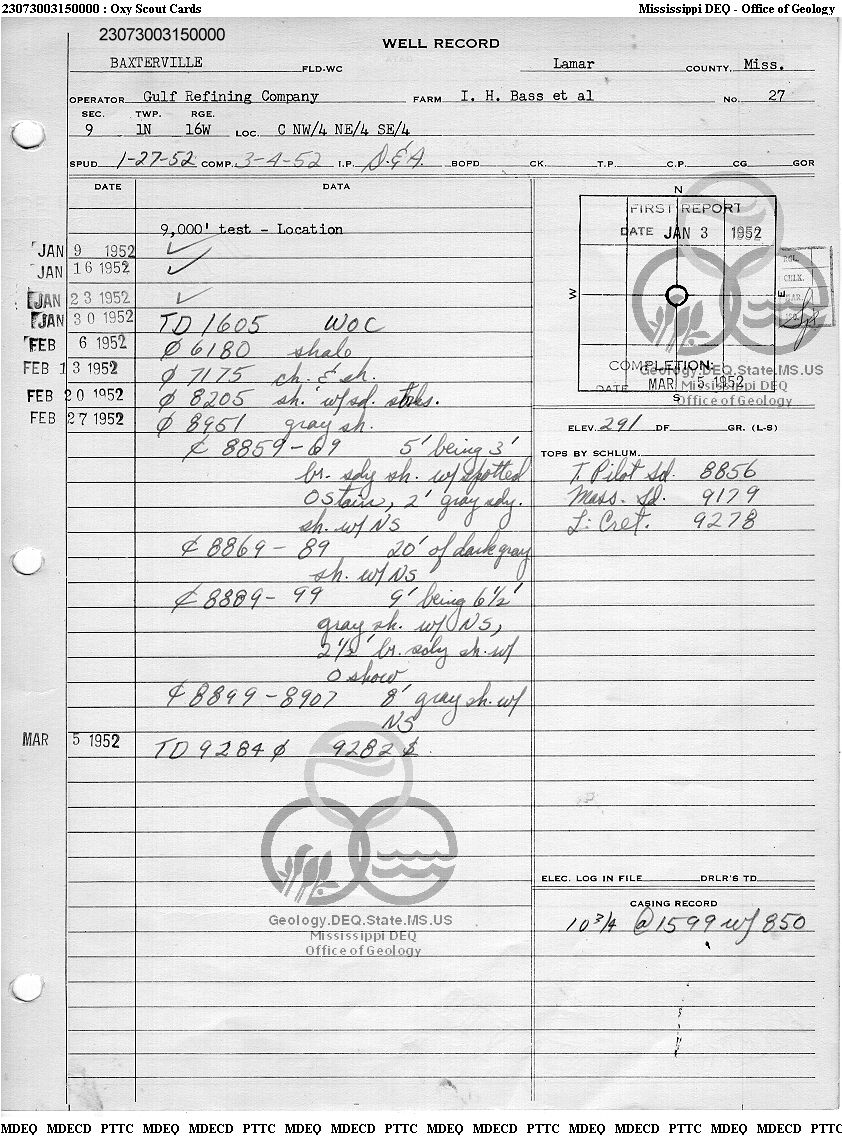 23073003150000 : Oxy Scout Cards Mississippi DEQ - Office of Geology
23073003150000
WELL RECORD
BAXTERVILLE FLD-WC Lamar COUNTY, Miss.
OPERATOR Gulf Refining Company FARM I. H. Bass et al No. 27
SEC. TWP. RGE.
9 1N 16W LOC. C NW/4 NE/4 SE/4
SPUD 1-27-52 COMP. 3-4-52 I.P. D.&A. BOPD CK. T.P. C.P. CG GOR
DATE DATA
9,000' test - Location
JAN 9 1952 ✓
JAN 16 1952 ✓
JAN 23 1952 ✓
JAN 30 1952 TD 1605 WOC
FEB 6 1952 ₵ 6180 shale
FEB 13 1952 ₵ 7175 ch. & sh.
FEB 20 1952 ₵ 8205 sh. w/ sd. stks.
FEB 27 1952 ₵ 8951 gray sh.
₵ 8859-69 5' being 3'
br. sdy sh. w/ spotted
O stain, 2' gray sdy.
sh. w/ NS
₵ 8869-89 20' of dark gray
sh. w/ NS
₵ 8889-99 9' being 6 1/2'
gray sh. w/ NS,
2 1/2' br. sdy sh. w/
O show
₵ 8899-8907 8' gray sh. w/
NS
MAR 5 1952 TD 9284 ₵ 9282 $.
N
FIRST REPORT
DATE JAN 3 1952
W E
COMPLETION:
DATE MAR 5 1952
S
Geology.DEQ.State.MS.US
Mississippi DEQ
Office of Geology
ELEV. 291 DF GR. (L-S)
TOPS BY SCHLUM.
T. Pilot Sd. 8856
Mass. Sd. 9179
L. Cret. 9278
ELEC. LOG IN FILE DRLR'S TD
CASING RECORD
10 3/4 @ 1599 w/ 850
Geology.DEQ.State.MS.US
Mississippi DEQ
Office of Geology
MDEQ MDECD PTTC MDEQ MDECD PTTC MDEQ MDECD PTTC MDEQ MDECD PTTC MDEQ MDECD PTTC MDEQ MDECD PTTC